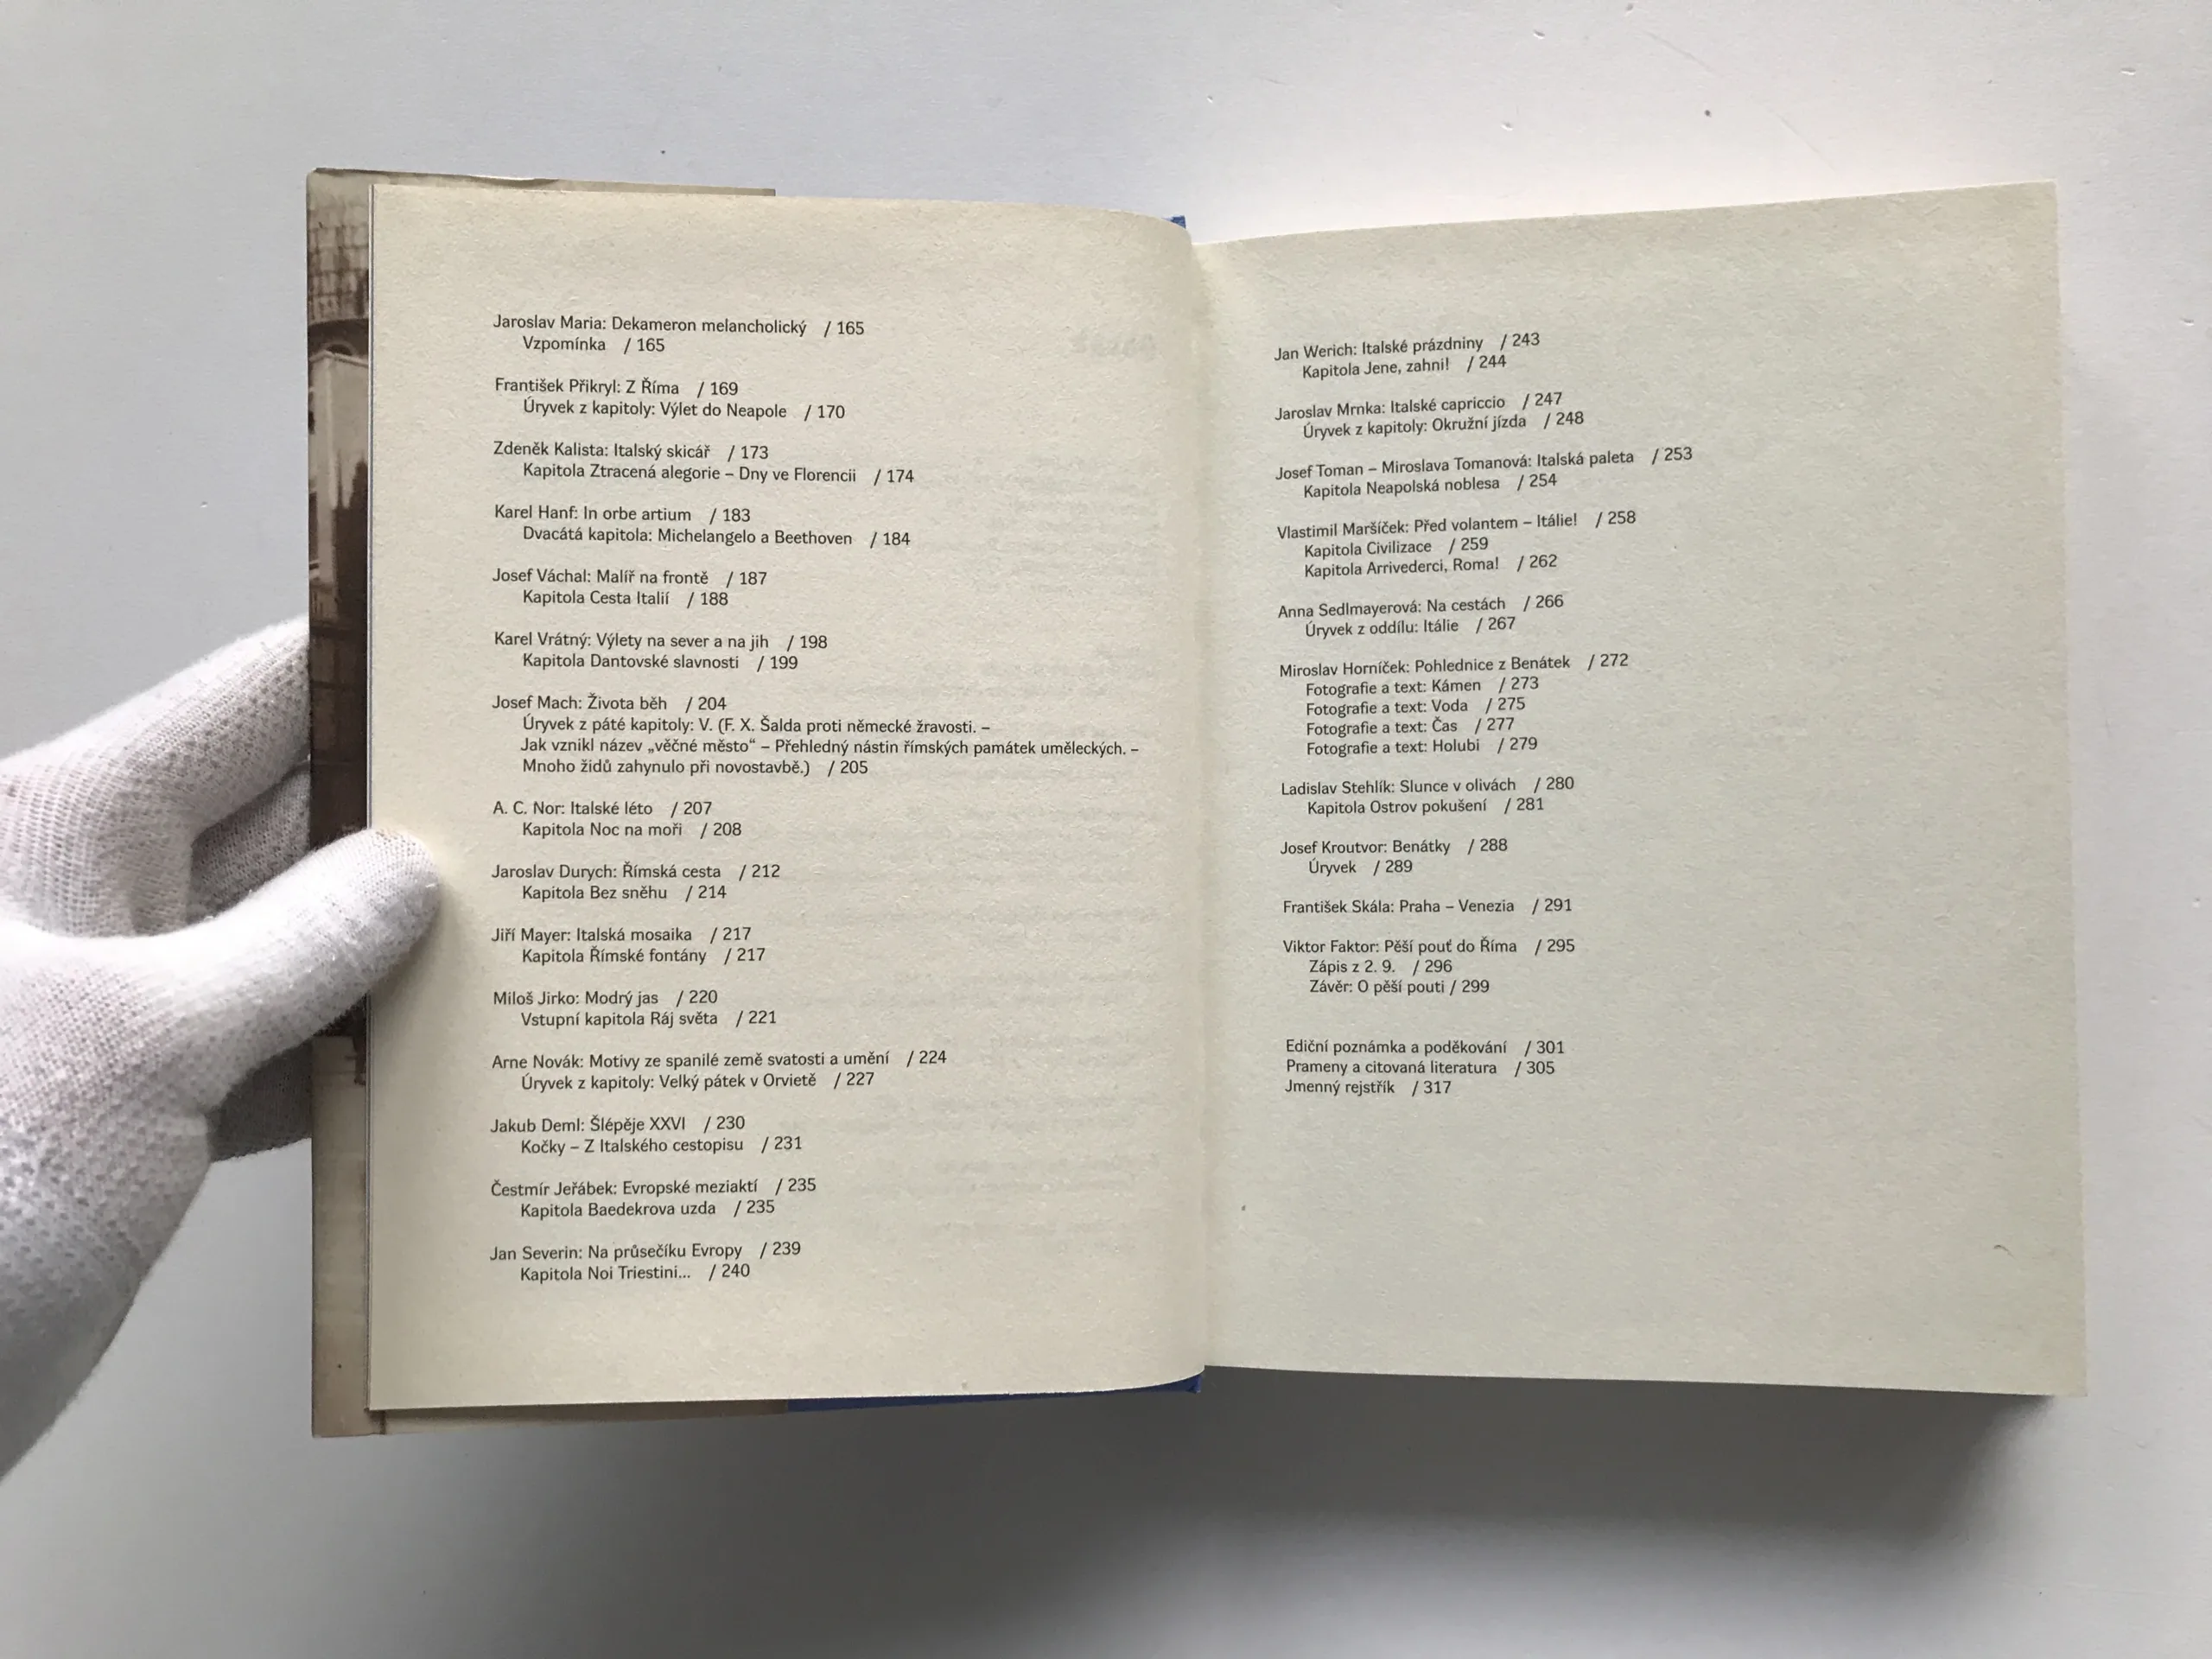 Jaroslav Maria: Dekameron melancholický / 165
Vzpomínka / 165
František Přikryl: Z Říma / 169
Úryvek z kapitoly: Výlet do Neapole / 170
Zdeněk Kalista: Italský skicář / 173
Kapitola Ztracená alegorie – Dny ve Florencii / 174
Karel Hanf: In orbe artium / 183
Dvacátá kapitola: Michelangelo a Beethoven / 184
Josef Váchal: Malíř na frontě / 187
Kapitola Cesta Italií / 188
Karel Vrátný: Výlety na sever a na jih / 198
Kapitola Dantovské slavnosti / 199
Josef Mach: Života běh / 204
Úryvek z páté kapitoly: V. (F. X. Šalda proti německé žravosti. –
Jak vznikl název „věčné město“ – Přehledný nástin římských památek uměleckých. –
Mnoho židů zahynulo při novostavbě.) / 205
A. C. Nor: Italské léto / 207
Kapitola Noc na moři / 208
Jaroslav Durych: Římská cesta / 212
Kapitola Bez sněhu / 214
Jiří Mayer: Italská mosaika / 217
Kapitola Římské fontány / 217
Miloš Jirko: Modrý jas / 220
Vstupní kapitola Ráj světa / 221
Arne Novák: Motivy ze spanilé země svatosti a umění / 224
Úryvek z kapitoly: Velký pátek v Orvietě / 227
Jakub Deml: Šlépěje XXVI / 230
Kočky – Z Italského cestopisu / 231
Čestmír Jeřábek: Evropské meziaktí / 235
Kapitola Baedekrova uzda / 235
Jan Severin: Na průsečíku Evropy / 239
Kapitola Noi Triestini... / 240
Jan Werich: Italské prázdniny / 243
Kapitola Jene, zahni! / 244
Jaroslav Mrnka: Italské capriccio / 247
Úryvek z kapitoly: Okružní jízda / 248
Josef Toman – Miroslava Tomanová: Italská paleta / 253
Kapitola Neapolská noblesa / 254
Vlastimil Maršíček: Před volantem – Itálie! / 258
Kapitola Civilizace / 259
Kapitola Arrivederci, Roma! / 262
Anna Sedlmayerová: Na cestách / 266
Úryvek z oddílu: Itálie / 267
Miroslav Horníček: Pohlednice z Benátek / 272
Fotografie a text: Kámen / 273
Fotografie a text: Voda / 275
Fotografie a text: Čas / 277
Fotografie a text: Holubi / 279
Ladislav Stehlík: Slunce v olivách / 280
Kapitola Ostrov pokušení / 281
Josef Kroutvor: Benátky / 288
Úryvek / 289
František Skála: Praha – Venezia / 291
Viktor Faktor: Pěší pouť do Říma / 295
Zápis z 2. 9. / 296
Závěr: O pěší pouti / 299
Ediční poznámka a poděkování / 301
Prameny a citovaná literatura / 305
Jmenný rejstřík / 317